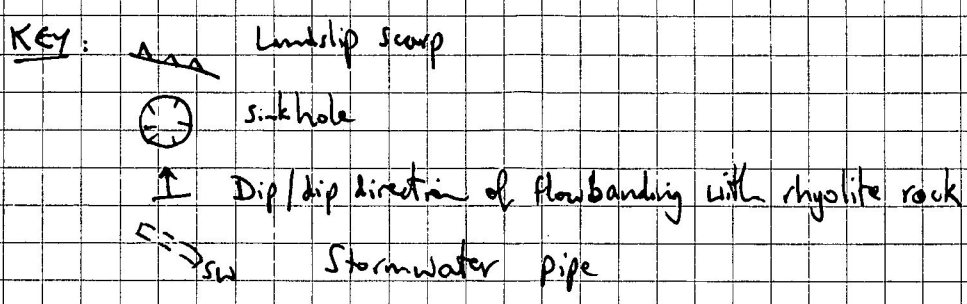 KEY: Landslip scarp
sinkhole
Dip/dip direction of flowbanding with rhyolite rock
SW Stormwater pipe